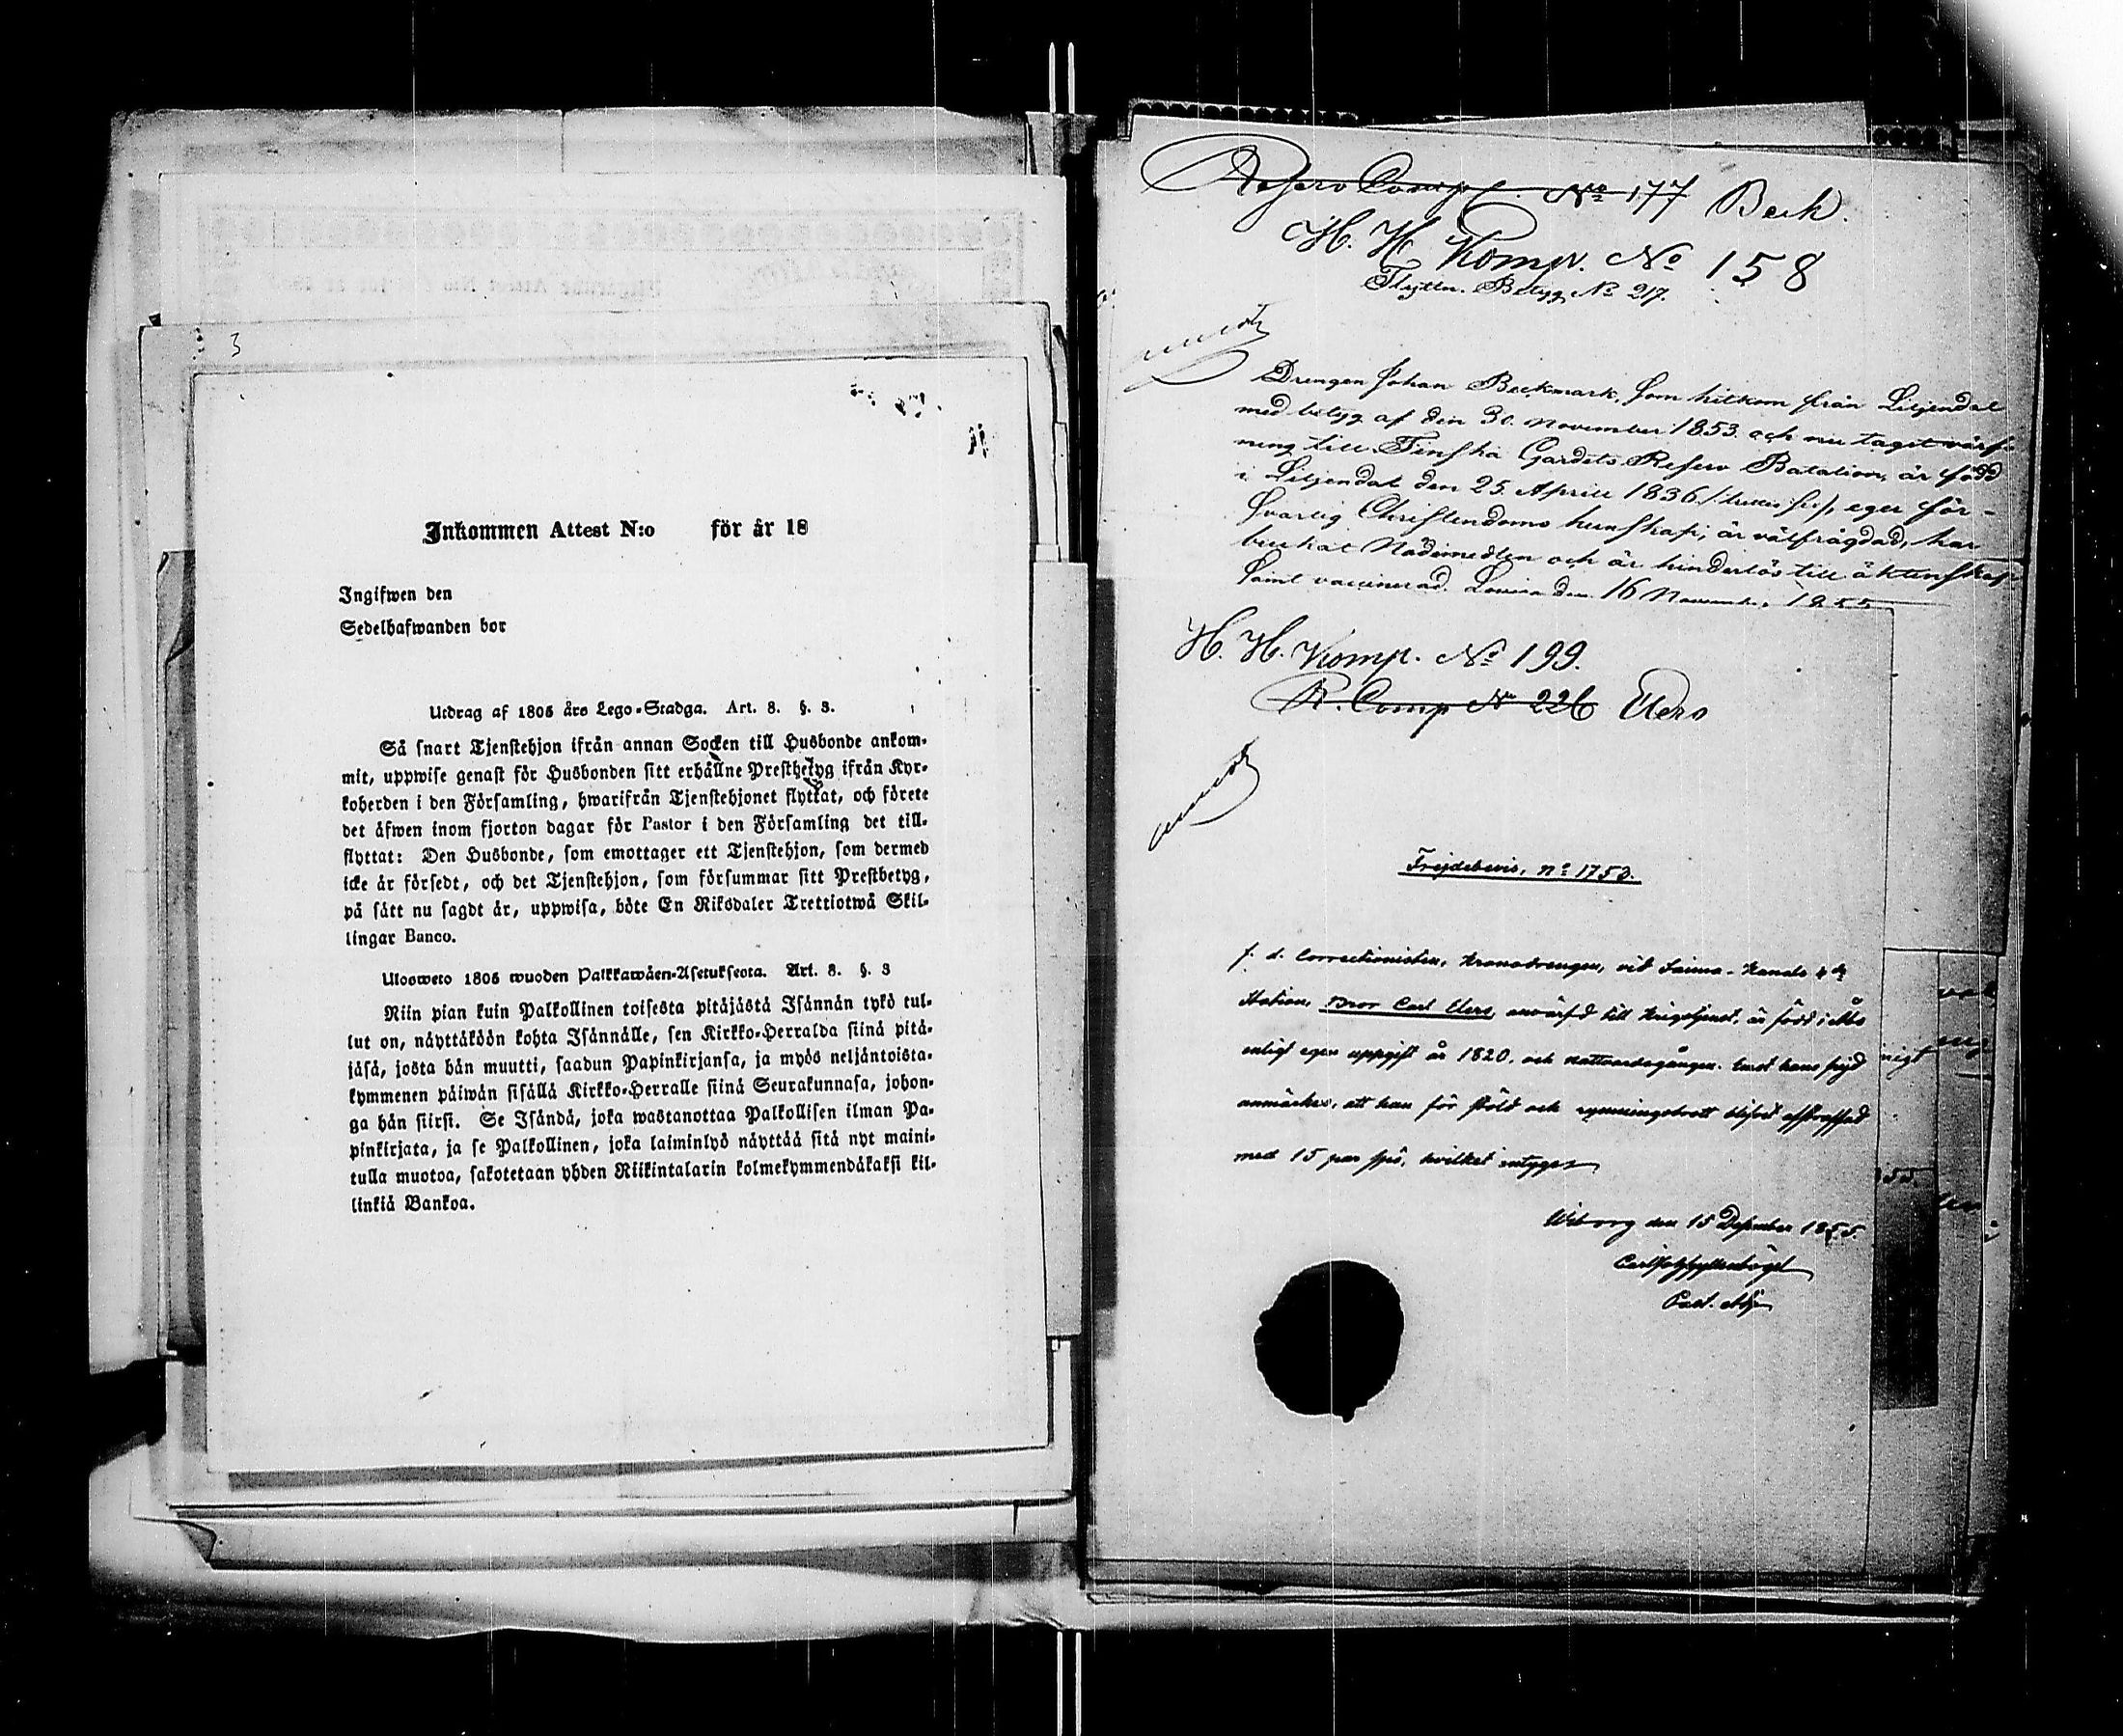 3
Inkommen Attest N:o för år 18
Ingifwen den
Sedelhafwanden bor
Utdrag af 1805 års Lego-Stadga. Art. 8. §. 3.
Så snart Tjenstehjon ifrån annan Socken till Husbonde ankom-
mit, uppwise genast för Husbonden sitt erhållne Prestbetyg ifrån Kyr-
koherden i den Församling, hwarifrån Tjenstehjonet flyttat, och förete
det åfwen inom fjorton dagar för Pastor i den Församling det till-
flyttat: Den Husbonde, som emottager ett Tjenstehjon, som dermed
icke är försedt, och det Tjenstehjon, som försummar sitt Prestbetyg,
på sått nu sagdt är, uppwisa, böte En Riksdaler Trettiotwå Skil-
lingar Banco.
Ulosweto 1805 wuoden Palkkawäen-Asetuksesta. Art. 8. §. 3
Niin pian kuin Palkollinen toisesta pitäjästä Isännän tykö tul-
lut on, näyttäköön kohta Isännälle, sen Kirkko-Herralda siinä pitä-
jäsä, josta hän muutti, saadun Papinkirjansa, ja myös neljäntoista-
kymmenen päiwän sisällä Kirkko-Herralle siinä Seurakunnasa, johon-
ga hän siirsi. Se Isändä, joka wastanottaa Palkollisen ilman Pa-
pinkirjata, ja se Palkollinen, joka laiminlyö näyttää sitä nyt maini-
tulla muotoa, sakotetaan yhden Riikintalarin kolmekymmendäkaksi kil-
linkiä Bankoa.
Reserv Comp. No 177 Beck.
H. H. Komp. No 158
Flyttn. Betyg No 217.
Drengen Johan Beckmark, som hitkom från Liljendal
med betyg af den 30. November 1853 och nu tagit värf-
ning till Finska Gardets Reserv Batalion, är född
i Liljendal den 25. Aprill 1836 eger för-
svarlig Christendoms kunskap, är välfrägdad, har
bruckat Nådemedlen och är hinderlös till äktenskap
samt vaccinerad. Lovisa den 16 November 1855
H. H. Komp. No 199.
R. Comp No 226 Elers
Frejdebevis, no 1753.
f. d. Correctionisten, Kronodrengen, vid Saima-Kanals 4de
Station, Bror Carl Elers, anvärfd till Krigstjenst, är född i Åbo
enligt egen uppgift år 1820, och nattvardsgången. Emot hans frejd
anmärkes, att han för stöld och rymningsbrott blifvit afstraffad
med 15 par spö, hvilket intygas
Wiborg den 15 December 1855.